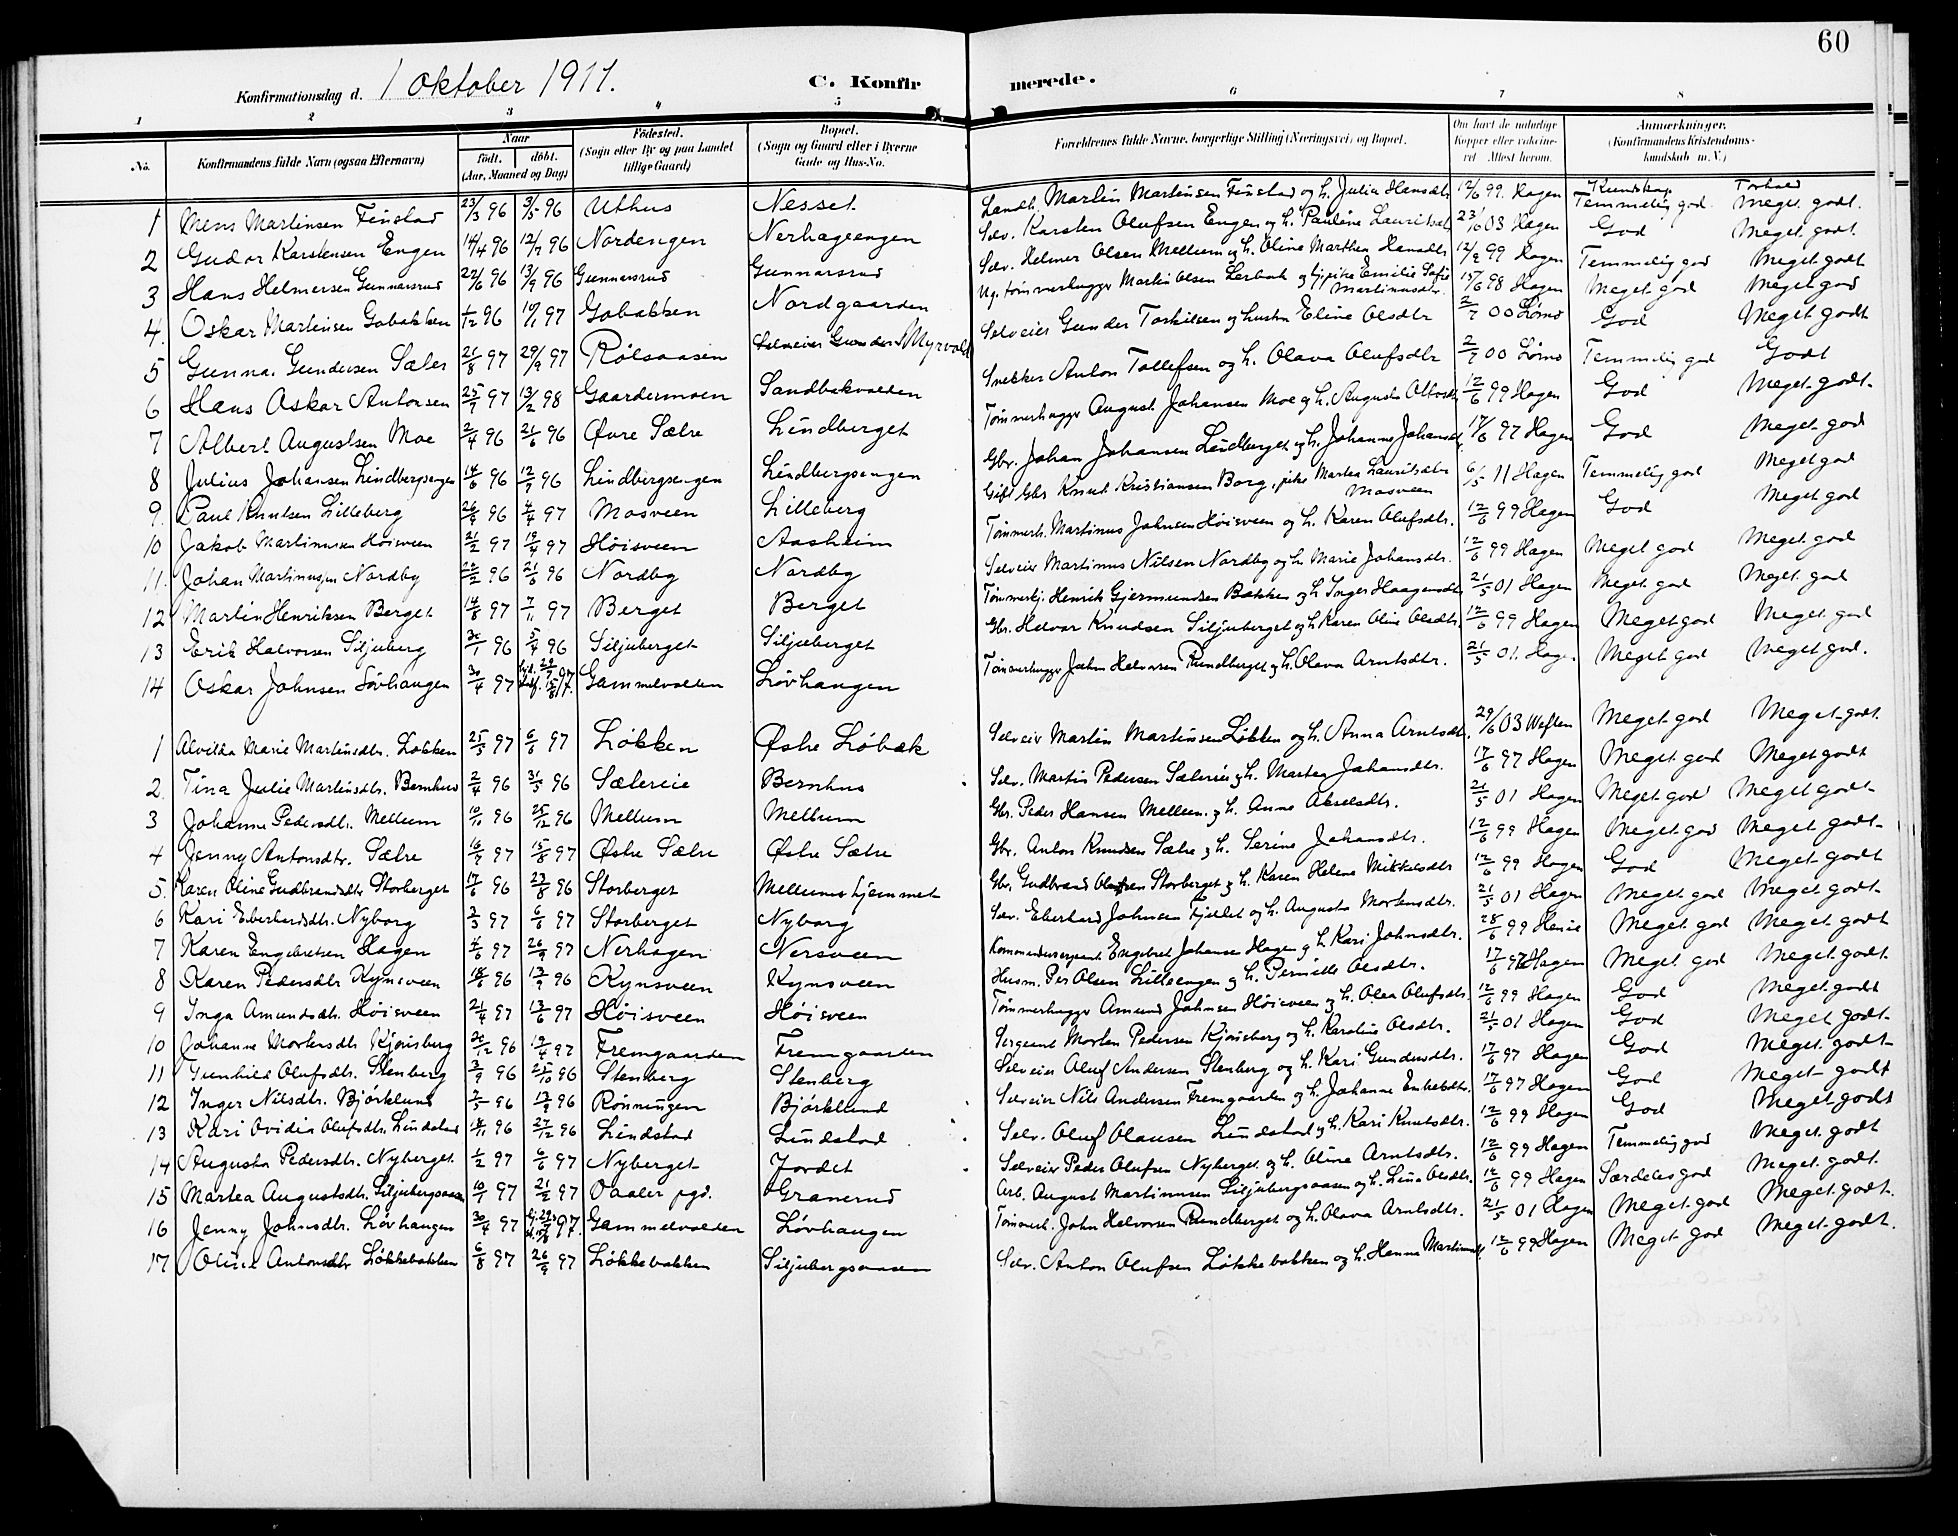 60
Konfirmationsdag d. 1 oktober 1911. C. Konfirmerede.
1 2 3 4 5 6 7 8
No. Konfirmandens fulde Navn (ogsaa Efternavn) Naar født. døbt. (Aar, Maaned og Dag) Fødested. (Sogn eller By og paa Landet tillige Gaard) Bopæl. (Sogn og Gaard eller i Byerne Gade og Hus-No. Forældrenes fulde Navne, borgerlige Stilling (Næringsvei) og Bopæl. Om havt de naturlige Kopper eller vakcineret Attest herom. Anmærkninger. (Konfirmandens Kristendomskundskab m. V.)
Kundskap Forhold
1 Mens Martinsen Finstad 23/3 96 3/5 96 Uthus Nesset Landh. Martin Martinsen Finstad og h. Julia Hansdtr 12/6 99. Hagen Temmelig god meget godt.
2 Gudor Karstensen Engen 14/4 96 12/7 96 Nordengen Nerhageengen Selv. Karsten Olufsen Engen og h. Pauline Lauritsdtr 23/6 03 Hagen God Meget godt.
3 Hans Helmersen Gunnarsrud 22/6 96 13/9 96 Gunnarsrud Gunnarsrud Selv. Helmer Olsen Mellum og h. Oline Marthea Hansdtr 12/9 99 Hagen Temmelig god Meget godt
4. Oskar Martinsen Gobakken 1/12 96 10/1 97 Gobakken Nordgaarden Ug. tømmerhugger Martin Olsen Lerbak og pike Emilie Sofie Martinusdtr. 15/6 98 Hagen Meget god Meget god
5 Gunna. Gundersen Sæter 21/8 97 29/9 97 Rølsaasen Myrvold Selveier Gunder Torkilsen og hustru Eline Olsdtr 2/7 00 Lømo God Meget godt
6 Hans Oskar Antonsen 25/7 97 13/2 98 Gaardermoen Sandbakvolden Snekker Anton Tollefsen og h. Olava Olufsdtr 2/7 00 Lømo Temmelig god Godt
7 Albert Augustsen Moe 2/4 96 21/6 96 Øvre Sætre Lindberget Tømmerhugger August Johansen Moe og h. Augusta Ottosdtr 12/6 99 Hagen God Meget godt.
8 Julius Johansen Lindbergsengen 14/6 96 12/7 96 Lindbergsengen Lindbergsengen Gbr. Johan Johansen Lindberget og h. Johanne Johansdtr 17/6 97 Hagen God Meget god
9. Paul Knutsen Lilleberg 26/9 96 4/4 97 Mosveen Lilleberg Gift Gbr Knut Kristiansen Borg, pike Martea Lauritsdtr Mosveen 6/5 11 Hagen Temmelig god Meget god
10 Jakob Martinusen Høisveen 21/2 97 19/4 97 Høisveen Aasheim Tømmerh. Martinus Johnsen Høisveen og h. Karen Olufsdtr. 12/6 99 Hagen God Meget god
11. Johan Martinusen Nordby 22/2 96 21/6 96 Nordby Nordby Selveier Martinus Nilsen Nordby og h. Marie Johansdtr. 12/6 99 Hagen Meget god Meget god
12 Martin Henriksen Berget 14/8 97 7/11 97 Berget Berget Tømmerkj. Henrik Gjermundsen Bakken og h Inger Haagensdtr 21/5 01 Hagen Meget god Meget god
13 Erik Halvorsen Siljuberg 30/1 96 5/4 96 Siljuberget Siljuberget Gbr. Halvor Knudsen Siljuberget og h Karen Oline Olsdtr. 12/6 99 Hagen Meget god Meget god
14 Oskar Johnsen Løvhaugen 30/4 97 15/8 97. Gammelvolden Løvhaugen Tømmerhugger John Halvorsen Rundberget og h. Olava Arntsdtr. 21/5 01. Hagen Meget god Meget god.
1 Alvilda Marie Martinsdtr. Løkken 25/5 97 6/6 97 Løkken Østre Løbæk Selveier Martin Martinsen Løkken og h. Anna Arntsdtr. 29/6 03 Weften Meget god Meget godt.
2. Tina Julie Martinsdtr. Bernhus 2/4 96 31/5 96 Sætereie Bernhus Selv. Martin Pedersen Sætereie og h. Martea Johansdtr. 17/6 97 Hagen Meget god Meget godt
3 Johanne Pedersdtr. Mellum 10/10 96 25/12 96 Mellum Mellum Gbr. Peder Hansen Mellum og h. Anne Akselsdtr. 21/5 01 Hagen Meget god Meget godt
4 Jenny Antonsdtr. Sætre 16/7 97 15/8 97 Østre Sætre Østre Sætre Gbr. Anton Knudsen Sætre og h. Serine Johansdtr. 12/6 99 Hagen Meget god Meget godt
5. Karen Oline Gudbrandsdtr Storberget 17/6 96 23/8 96 Storberget Mellumshjemmet Gbr. Gudbrand Olufsen Storberget og h. Karen Helene Mikkelsdtr 12/6 99 Hagen God Meget godt
6 Kari Eberhardsdtr. Nyborg 3/3 97 6/6 97 Storberget Nyborg Selv. Eberhard Johnsen Fjellet og h. Augusta Mortensdtr. 21/5 01 Hagen Meget god Meget godt
7 Karen Engebretsen Hagen 4/6 97 26/9 97 Nerhagen Nersveen Kommandersergeant Engebret Johansen Hagen og h Kari Johnsdtr. 28/6 99 Meget god Meget godt
8 Karen Pedersdtr Kynsveen 18/6 96 13/9 96 Kynsveen Kynsveen Husm. Per Olsen Lilleengen og h. Pernille Olsdtr. 17/6 97 Hagen Meget god Meget godt.
9 Inga Amundsdtr. Høisveen 21/4 97 13/6 97 Høisveen Høisveen Tømmerhugger Amund Johnsen Høisveen og h. Olea Olufsdtr. 12/6 99 Hagen God Meget godt
10 Johanne Mortensdtr Kjønsberg 30/12 96 19/4 97 Fremgaarden Fremgaarden Sergeant Morten Pedersen Kjønsberg og h. Karoline Olsdtr. 21/5 01 Hagen God Meget godt.
11 Gunhild Olufsdtr. Stenberg 3/9 96 25/10 96 Stenberg Stenberg Selveier Oluf Andersen Stenberg og h. Kari Gundersdtr. 17/6 97 Hagen God Meget godt
12 Inger Nilsdtr. Bjørklund 7/5 96 13/9 96 Rønningen Bjørklund Selveier Nils Andersen Fremgaarden og h. Johanne Embretsdtr 17/6 97 Hagen God Meget godt
13 Kari Ovidia Olufsdtr. Lindstad 18/11 96 27/12 96 Lindstad Lindstad Selv. Oluf Olausen Lindstad og h. Kari Knutsdtr. 12/6 99 Hagen God Meget godt
14 Augusta Pedersdtr. Nyberget 1/2 97 6/6 97 Nyberget Jordet Selveier Peder Olufsen Nyberget og h. Oline Arntsdtr. 12/6 99 Hagen Temmelig god Meget godt
15 Martea Augustsdtr. Siljubergsaasen 10/1 97 21/2 97 Vaaler pgd. Granerud Arb. August Martinusen Siljubergsaasen og h. Lina Olsdtr. 12/6 99 Hagen Særdeles god Meget godt.
16 Jenny Johnsdtr. Løvhaugen 30/4 97 97. Gammelvolden Løvhaugen Tømmerh. John Halvorsen Rundberget og h. Olava Arntsdtr. 21/5 01 Hagen Meget god Meget godt.
17 Oline Antonsdtr Løkkebakken 6/8 97 26/9 97 Løkkebakken Siljubergsaasen Selv. Anton Olufsen Løkkebakken og h. Hanna Martinusdtr 12/6 99 Hagen Meget god Meget godt.